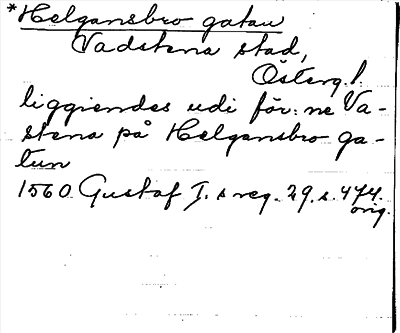 *Helgansbro gatan
Vadstena stad,
Österg.l.
liggiendes udi för:ne Va-
stena på Helgansbro ga-
tun
1560 Gustaf I.s reg. 29. s. 474.
orig.